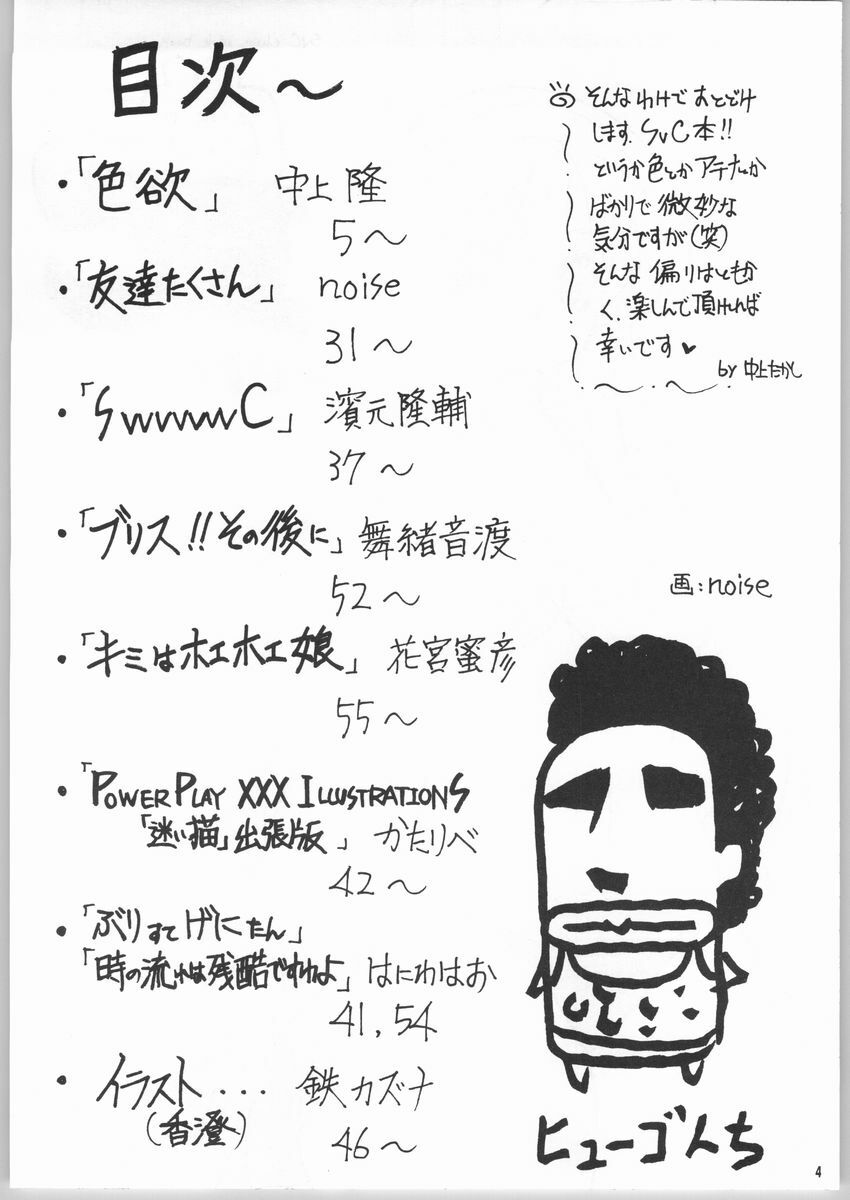 目次〜
・「色欲」 中上 隆
5〜
・「友達たくさん」 noise
31〜
・「SvvvvvvC」 濱元隆輔
37〜
・「ブリス!!その後に」 舞緒音渡
52〜
・「キミはホエホエ娘」 花宮蜜彦
55〜
・「POWER PLAY XXX ILLUSTRATIONS
「迷い猫」出張版 」 かたりべ
42〜
・「ぶりすてげにたん」
「時の流れは残酷ですわよ」 はにわはお
41, 54
・ イラスト... 鉄カズナ
(香澄) 46〜
そんなわけで おとどけ
します. SvC本!!
というか色とか アテナとか
ばかりで 微妙な
気分ですが(笑)
そんな 偏りはともか
く、楽しんで頂ければ
幸いです♥
by 中上たかし
画:noise
ヒューゴんち
4